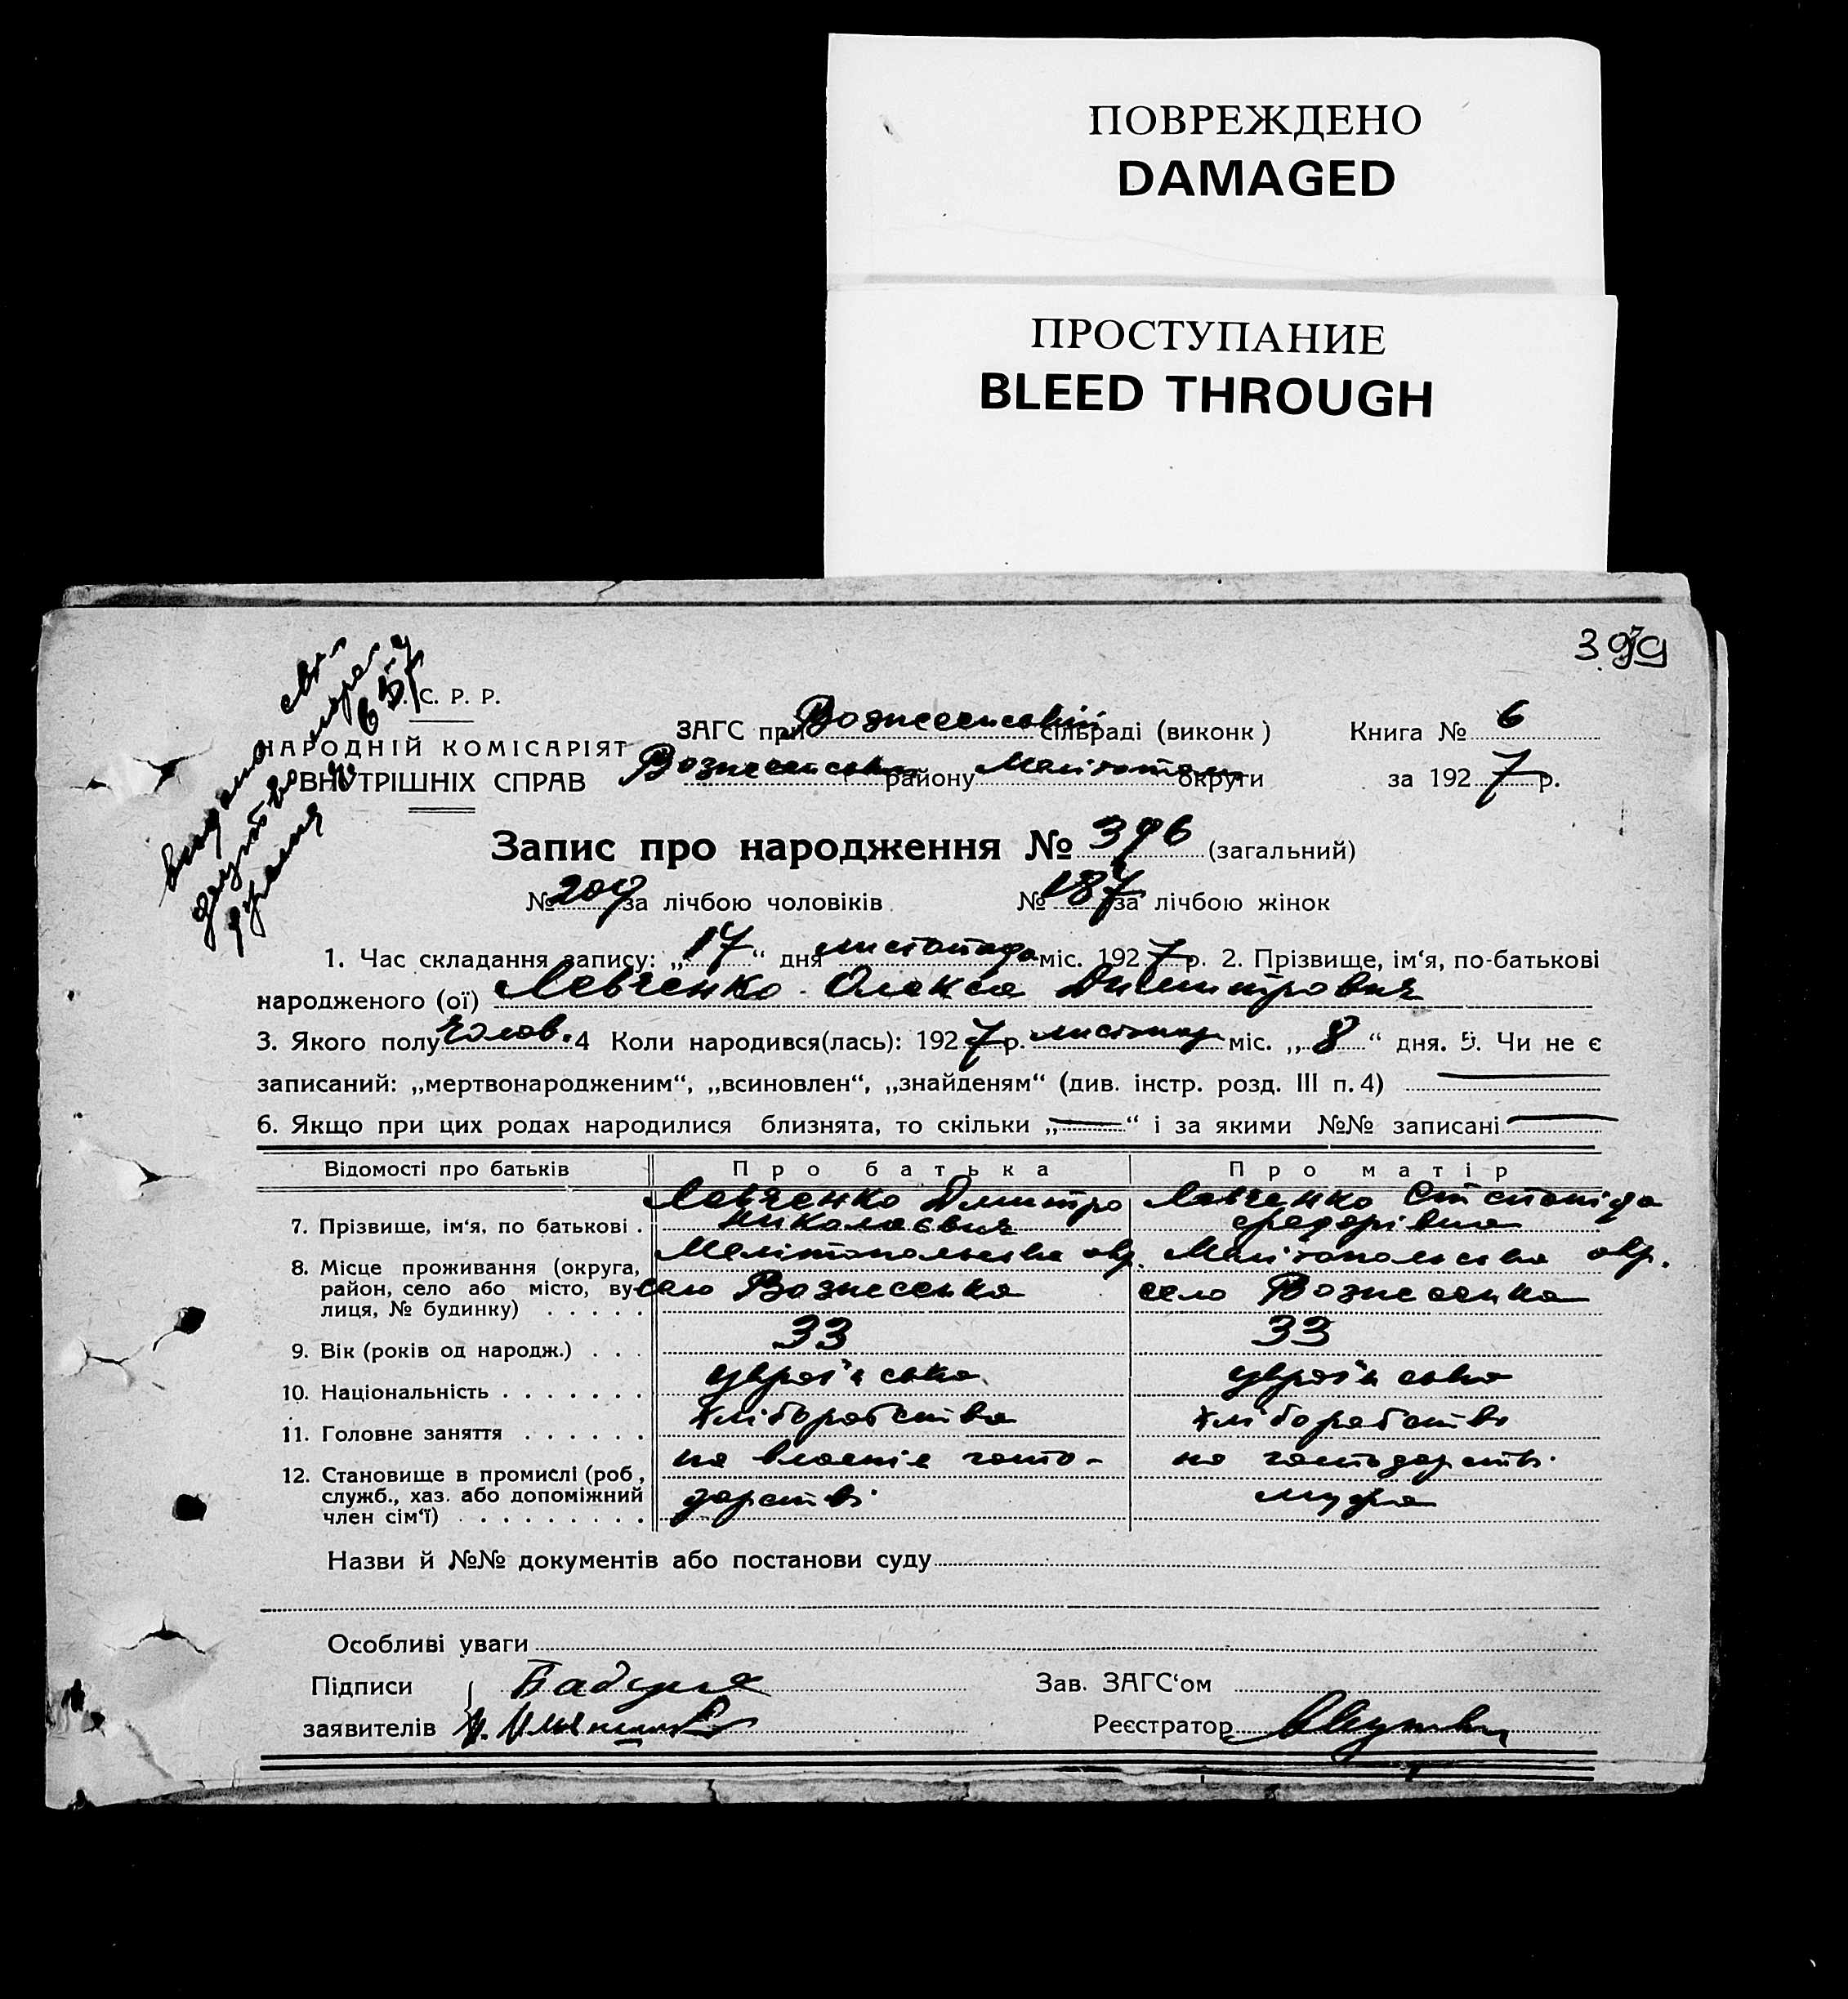 ПОВРЕЖДЕНО
DAMAGED
ПРОСТУПАНИЕ
BLEED THROUGH
С. Р. Р.
НАРОДНІЙ КОМІСАРІЯТ
ВНУТРІШНІХ СПРАВ
ЗАГС при Вознесенській сільраді (виконк)
Книга № 6
району округи
за 1927 р.
Запис про народження № 396 (загальний)
№ 209 за лічбою чоловіків. № 187 за лічбою жінок
1. Час складання запису: „17“ дня листопада міс. 1927 р. 2. Прізвище, ім‘я, по-батькові
народженого (ої) Левченко Олекса Димитрович
3. Якого полу Чолов. 4 Коли народився(лась): 1927 р. листопад міс. „8“ дня. 5. Чи не є
записаний: „мертвонародженим“, „всиновлен“, „знайденям“ (див. інстр. розд. III п. 4) —
6. Якщо при цих родах народилися близнята, то скільки „—“ і за якими №№ записані —
Відомості про батьків Про батька Про матір
7. Прізвище, ім‘я, по батькові . Левченко Дмитро Левченко
Николаєвич
8. Місце проживання (округа, Мелітопольська окр. Мелітопольська окр.
район, село або місто, ву- село Вознесенка село Вознесенка
лиця, № будинку) . . . . .
9. Вік (років од народж.) . . . 33 33
10. Національність . . . . . . . українська українська
11. Головне заняття . . . . . . хліборобство хліборобство
12. Становище в промислі (роб., на власнім госпо- на господарстві
служб., хаз. або допоміжний дарстві мужа
член сім‘ї) . . . . . . . . .
Назви й №№ документів або постанови суду
Особливі уваги
Підписи
Зав. ЗАГС‘ом
заявителів
Реєстратор